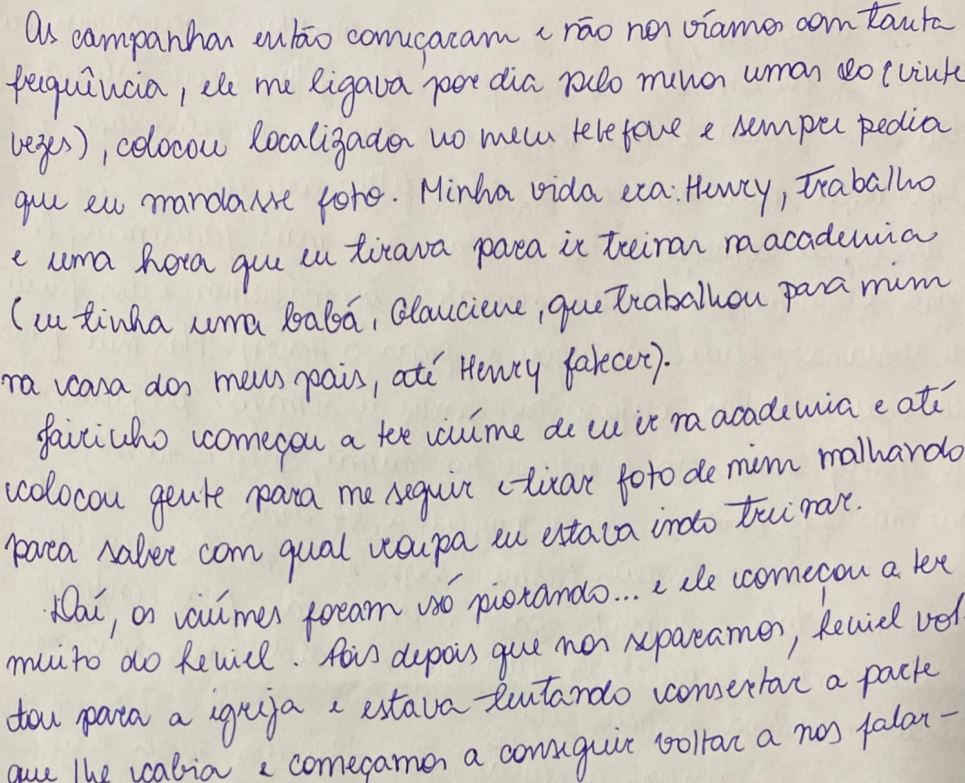 As campanhas então começaram e não nos víamos com tanta
frequência, ele me ligava por dia pelo menos umas 20 (vinte
vezes), colocou localizador no meu telefone e sempre pedia
que eu mandasse foto. Minha vida era: Henry, trabalho
e uma hora que eu tirava para ir treinar na academia
(eu tinha uma babá, Glauciene, que trabalhou para mim
na casa dos meus pais, até Henry falecer).
Jairinho começou a ter ciúme de eu ir na academia e até
colocou gente para me seguir e tirar foto de mim malhando
para saber com qual roupa eu estava indo treinar.
Daí, os ciúmes foram só piorando... e ele começou a ter
muito do Leniel. Pois depois que nos separamos, Leniel vol-
tou para a igreja e estava tentando consertar a parte
que lhe cabia e começamos a conseguir voltar a nos falar-